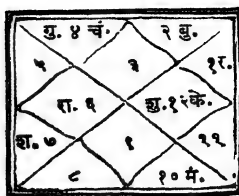 गु. ४ चं. २ बु.
५ ३ १र.
रा. ६ शु.१२के.
श. ७ ९ ११
८ १०मं.